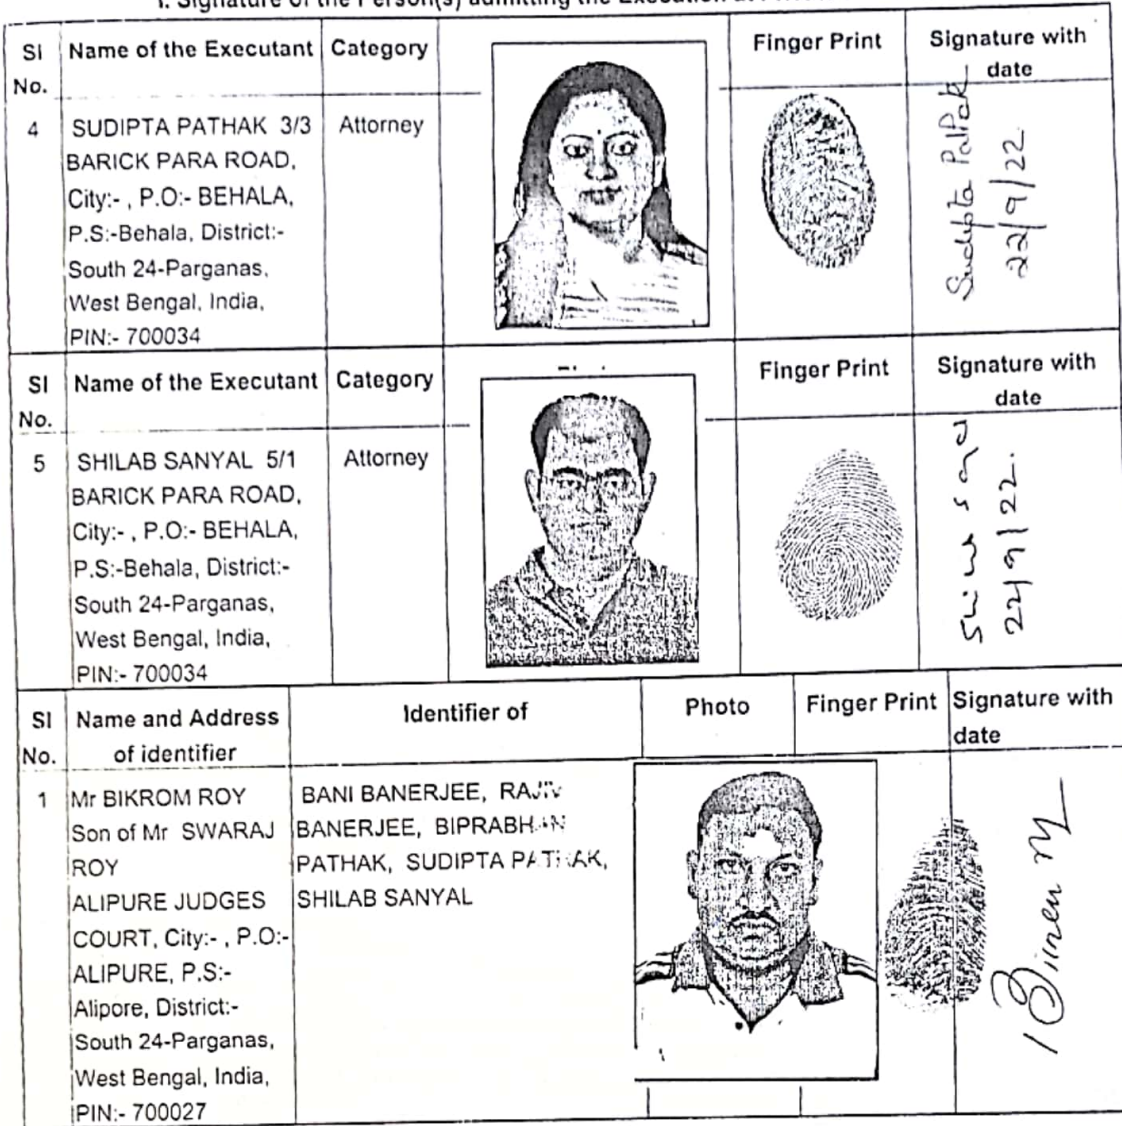 I. Signature of the Person(s) admitting the Execution at
Sl No. Name of the Executant Category Finger Print Signature with date
4 SUDIPTA PATHAK 3/3 Attorney
BARICK PARA ROAD,
City:- , P.O:- BEHALA,
P.S:-Behala, District:-
South 24-Parganas,
West Bengal, India,
PIN:- 700034
Sudipta Pathak
22/9/22
Sl No. Name of the Executant Category Finger Print Signature with date
5 SHILAB SANYAL 5/1 Attorney
BARICK PARA ROAD,
City:- , P.O:- BEHALA,
P.S:-Behala, District:-
South 24-Parganas,
West Bengal, India,
PIN:- 700034
22/9/22.
Sl No. Name and Address of identifier Identifier of Photo Finger Print Signature with date
1 Mr BIKROM ROY
Son of Mr SWARAJ
ROY
ALIPURE JUDGES
COURT, City:- , P.O:-
ALIPURE, P.S:-
Alipore, District:-
South 24-Parganas,
West Bengal, India,
PIN:- 700027
BANI BANERJEE, RAJIV
BANERJEE, BIPRABHAN
PATHAK, SUDIPTA PATHAK,
SHILAB SANYAL